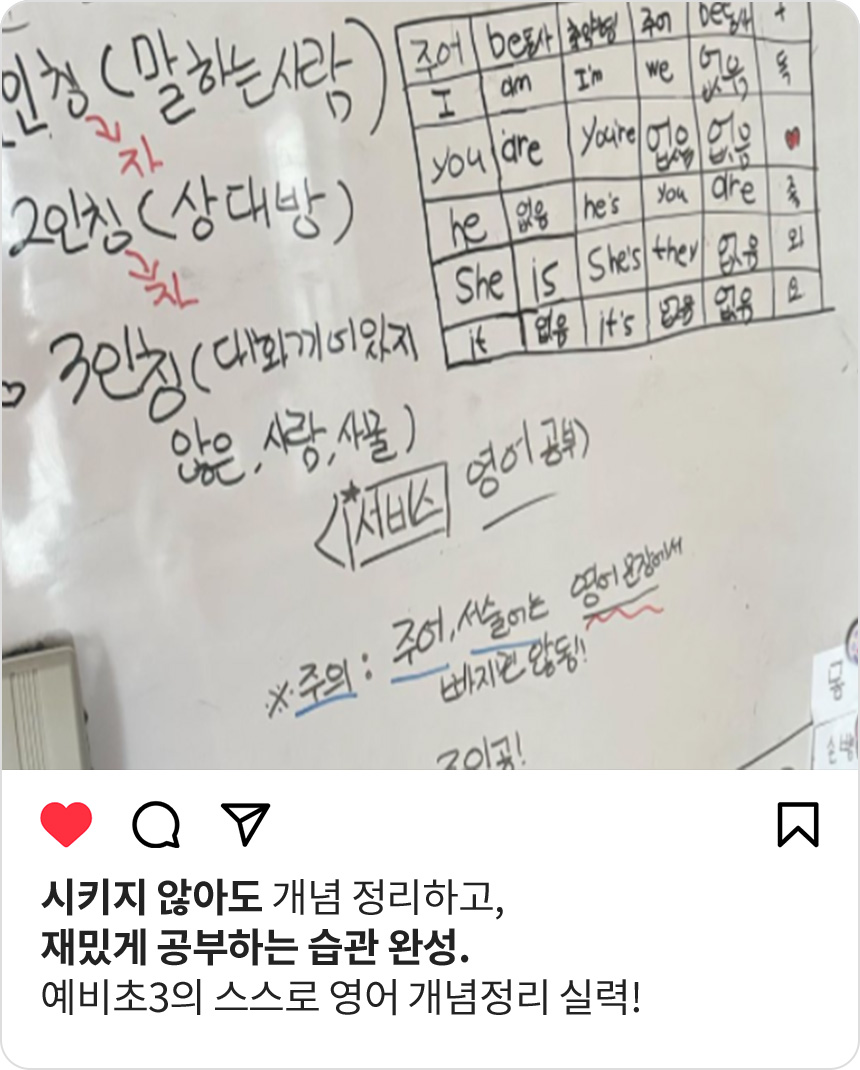 인칭(말하는사람)
나
2인칭(상대방)
너
3인칭(대화끼어있지
않은,사람,사물)
주어 be동사 축약형 주어 be동사 +
I am I'm we 없음
you are you're 없음 없음 ♥
he 없음 he's you are
She is She's they 없음
it 없음 it's 없음 없음
<*서비스 영어공부>
※주의: 주어,서술어는 영어문장에서
빠지면 않됭!!
시키지 않아도 개념 정리하고,
재밌게 공부하는 습관 완성.
예비초3의 스스로 영어 개념정리 실력!